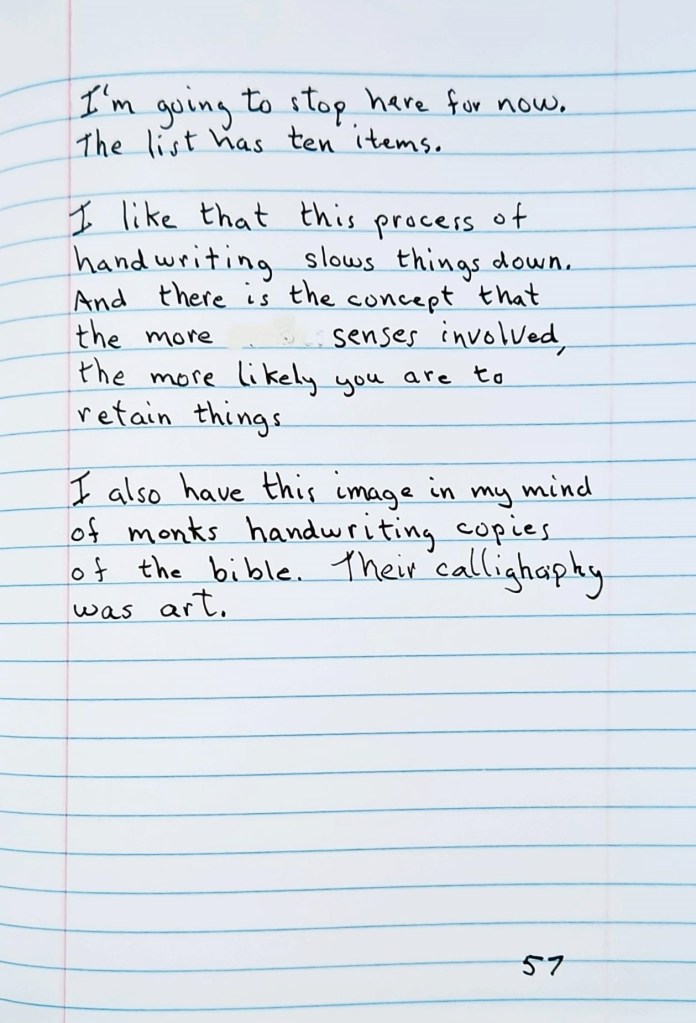 I'm going to stop here for now.
The list has ten items.
I like that this process of
handwriting slows things down.
And there is the concept that
the more senses involved,
the more likely you are to
retain things
I also have this image in my mind
of monks handwriting copies
of the bible. Their callighaphy
was art.
57